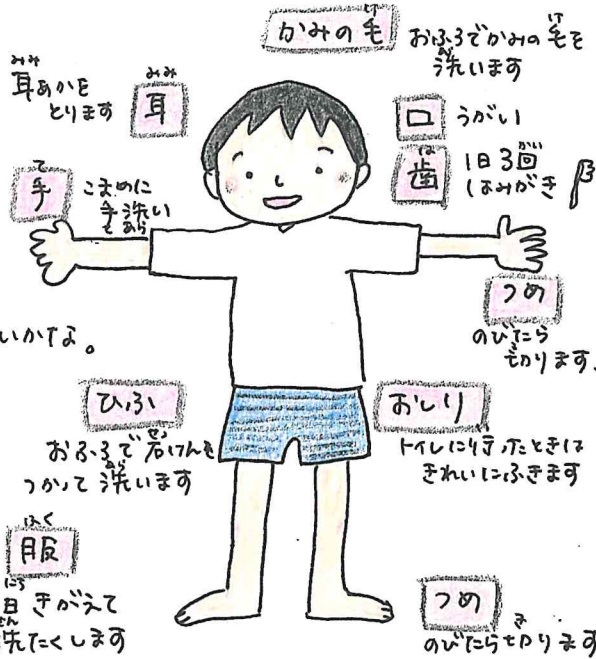 かみの毛
おふろでかみの毛を
洗います
耳
耳あかを
とります
口
うがい
歯
1日3回
はみがき
手
こまめに
手洗い
つめ
のびたら
切ります。
いかな。
ひふ
おふろで石けんを
つかって洗います
おしり
トイレに行ったときは
きれいにふきます
服
日きがえて
洗たくします
つめ
のびたら切ります